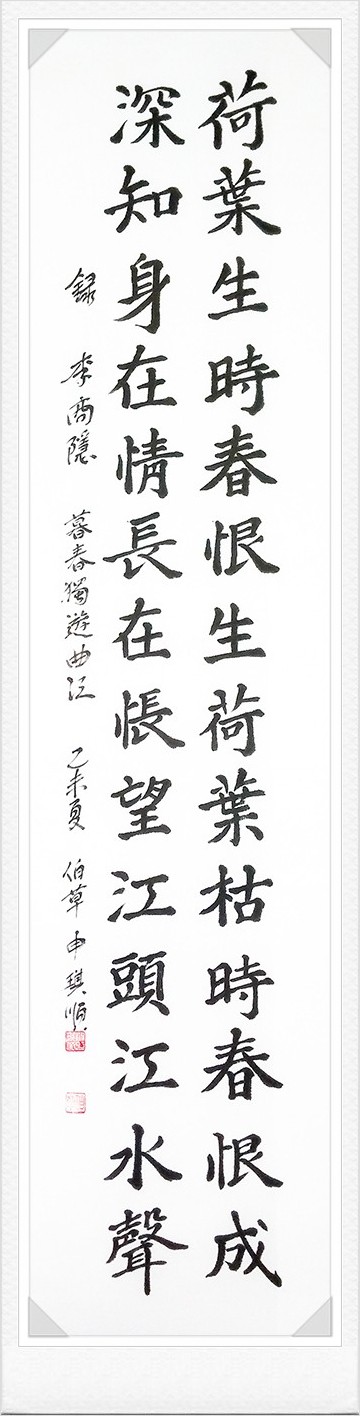 荷葉生時春恨生荷葉枯時春恨成
深知身在情長在悵望江頭江水聲
錄 李商隱 暮春獨遊曲江 乙未夏 伯草 申琪順